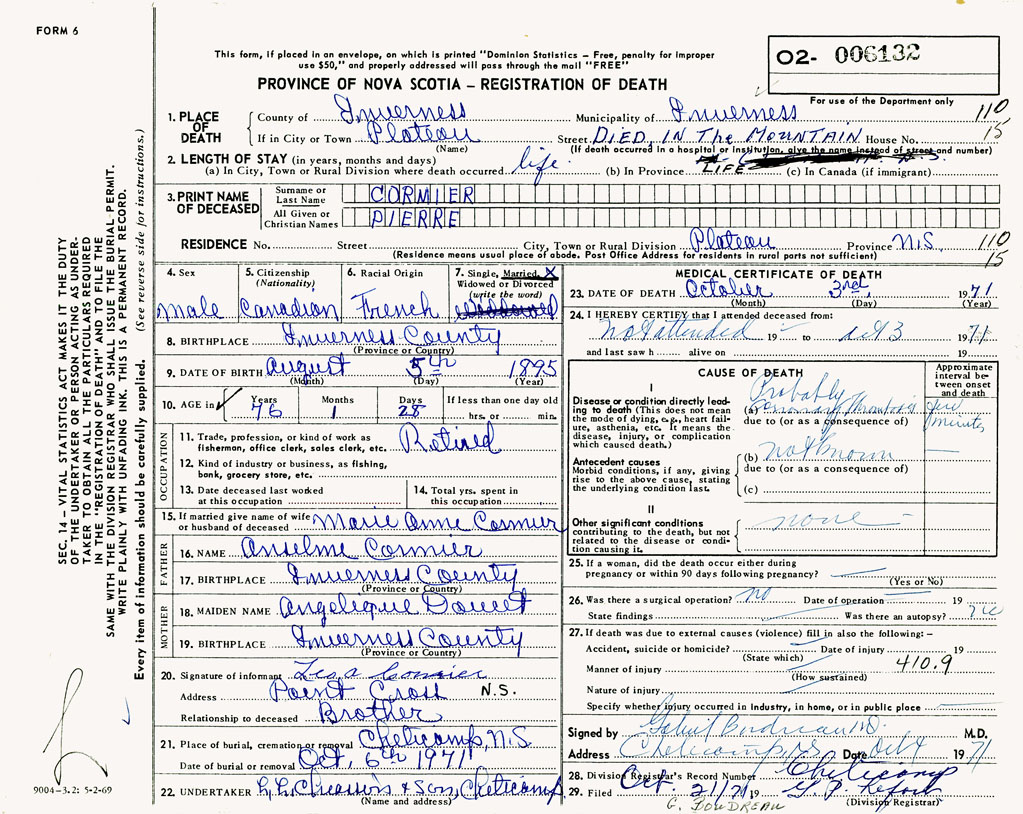 FORM 6
This form, if placed in an envelope, on which is printed "Dominion Statistics – Free, penalty for improper
use $50," and properly addressed will pass through the mail "FREE"
PROVINCE OF NOVA SCOTIA – REGISTRATION OF DEATH
02- 006132
For use of the Department only
1. PLACE OF DEATH
County of Inverness Municipality of Inverness 110
If in City or Town Plateau Street DIED IN The MOUNTAIN House No. 15
(Name) (If death occurred in a hospital or institution, give the name instead of street and number)
2. LENGTH OF STAY (in years, months and days)
(a) In City, Town or Rural Division where death occurred life. (b) In Province LIFE (c) In Canada (if immigrant)
3. PRINT NAME OF DECEASED
Surname or Last Name CORMIER
All Given or Christian Names PIERRE
RESIDENCE No. Street City, Town or Rural Division Plateau Province N.S. 110
15
(Residence means usual place of abode. Post Office Address for residents in rural parts not sufficient)
4. Sex
male
5. Citizenship
(Nationality)
Canadian
6. Racial Origin
French
7. Single, Married, X
Widowed or Divorced
(write the word)
8. BIRTHPLACE Inverness County
(Province or Country)
9. DATE OF BIRTH August 5th 1895
(Month) (Day) (Year)
10. AGE in Years Months Days If less than one day old
76 1 28 hrs. or min.
OCCUPATION
11. Trade, profession, or kind of work as
fisherman, office clerk, sales clerk, etc. Retired
12. Kind of industry or business, as fishing,
bank, grocery store, etc.
13. Date deceased last worked
at this occupation
14. Total yrs. spent in
this occupation
15. If married give name of wife
or husband of deceased Marie Anne Cormier
FATHER
16. NAME Anselme Cormier
17. BIRTHPLACE Inverness County
(Province or Country)
MOTHER
18. MAIDEN NAME Angelique Doucet
19. BIRTHPLACE Inverness County
(Province or Country)
20. Signature of informant Cormier
Address Point Cross N.S.
Relationship to deceased Brother
21. Place of burial, cremation or removal Cheticamp, N.S.
Date of burial or removal Oct. 6th 1971
22. UNDERTAKER & Son, Cheticamp
(Name and address)
MEDICAL CERTIFICATE OF DEATH
23. DATE OF DEATH October 3rd 1971
(Month) (Day) (Year)
24. I HEREBY CERTIFY that I attended deceased from:
not attended 19 to Oct 3 1971
and last saw h alive on 19
CAUSE OF DEATH
Approximate interval between onset and death
I
Disease or condition directly leading to death (This does not mean
the mode of dying, e.g., heart failure, asthenia, etc. It means the
disease, injury, or complication
which caused death.)
Probably
(a) Coronary Thrombosis few minutes
due to (or as a consequence of)
Antecedent causes
Morbid conditions, if any, giving
rise to the above cause, stating
the underlying condition last.
(b) not known –
due to (or as a consequence of)
(c)
II
Other significant conditions
contributing to the death, but not
related to the disease or condition causing it.
none –
25. If a woman, did the death occur either during
pregnancy or within 90 days following pregnancy?
(Yes or No)
26. Was there a surgical operation? no Date of operation 19
State findings Was there an autopsy? no
27. If death was due to external causes (violence) fill in also the following: –
Accident, suicide or homicide? Date of injury 19
(State which)
410.9
Manner of injury
(How sustained)
Nature of injury
Specify whether injury occurred in Industry, in home, or in public place
Signed by Boudreau M.D. M.D.
Address Cheticamp, N.S. Date Oct 4 1971
28. Division Registrar's Record Number Cheticamp
29. Filed Oct. 21/71 19
(Division Registrar)
G. BOUDREAU
SEC. 14 – VITAL STATISTICS ACT MAKES IT THE DUTY
OF THE UNDERTAKER OR PERSON ACTING AS UNDERTAKER TO OBTAIN ALL THE PARTICULARS REQUIRED
IN THE "REGISTRATION OF DEATH" AND TO FILE THE
SAME WITH THE DIVISION REGISTRAR WHO SHALL ISSUE THE BURIAL PERMIT.
WRITE PLAINLY WITH UNFADING INK. THIS IS A PERMANENT RECORD.
Every item of information should be carefully supplied. (See reverse side for instructions.)
9004-3.2: 5-2-69